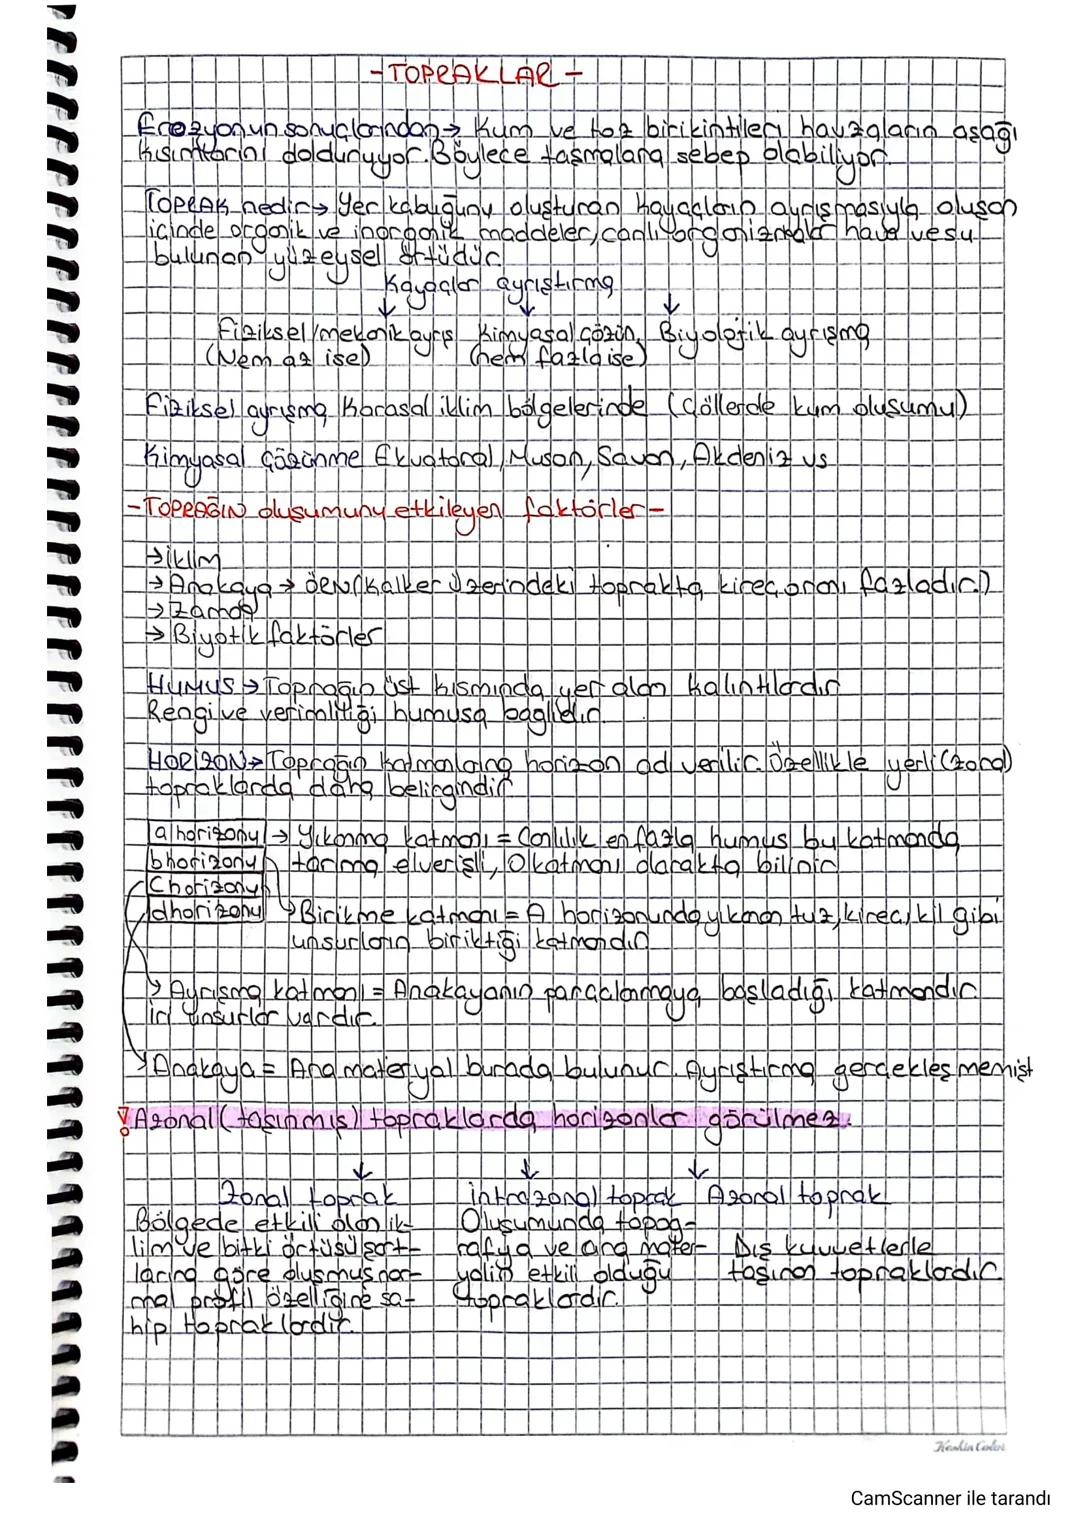 -TOPRAKLAR-
Erozyonun sonuçlarından→ Kum ve toz birikintileri havzaların aşağı
kısımlarını dolduruyor. Böylece taşmalara sebep olabiliyor.
TOPRAK nedir→ Yer kabuğunu oluşturan kayaçların ayrışmasıyla oluşan
içinde organik ve inorganik maddeler, canlı organizmalar hava ve su
bulunan yüzeysel örtüdür.
Kayaçlar ayrıştırma
↓ ↓ ↓
Fiziksel/mekanik ayrış Kimyasal çözün. Biyolojik ayrışma
(Nem az ise) (nem fazla ise)
Fiziksel ayrışma Karasal iklim bölgelerinde (Çöllerde kum oluşumu)
Kimyasal Çözünme Ekvatoral, Muson, Savan, Akdeniz vs
-TOPRAĞIN oluşumunu etkileyen faktörler-
→iklim
→Anakaya → ÖRN(Kalker üzerindeki toprakta kireç oranı fazladır.)
→Zaman
→Biyotik faktörler
HUMUS→Toprağın üst kısmında yer alan kalıntılardır
Rengi ve verimliliği humusa bağlıdır.
HORİZON→Toprağın katmanlarına horizon adı verilir. Özellikle yerli(zonal)
topraklarda daha belirgindir
a horizonu → Yıkanma katmanı = Canlılık en fazla humus bu katmanda
b horizonu tarıma elverişli, O katmanı olarakta bilinir
C horizonu
d horizonu →Birikme katmanı = A horizonunda yıkanan tuz, kireç, kil gibi
unsurların biriktiği katmandır
→ Ayrışma katmanı = Anakayanın parçalanmaya başladığı katmandır.
iri unsurlar vardır.
→Anakaya = Ana materyal burada bulunur. Ayrıştırma gerçekleşmemişt
! Azonal (taşınmış) topraklarda horizonlar görülmez.
↓ ↓ ↓
Zonal toprak intrazonal toprak Azonal toprak
Bölgede etkili olan ik- Oluşumunda topoğ-
lim ve bitki örtüsü şart- rafya ve ana mater- Dış kuvvetlerle
larına göre oluşmuş nor- yalin etkili olduğu taşınan topraklardır.
mal profil özelliğine sa- topraklardır.
hip topraklardır.
Keskin Color
CamScanner ile tarandı